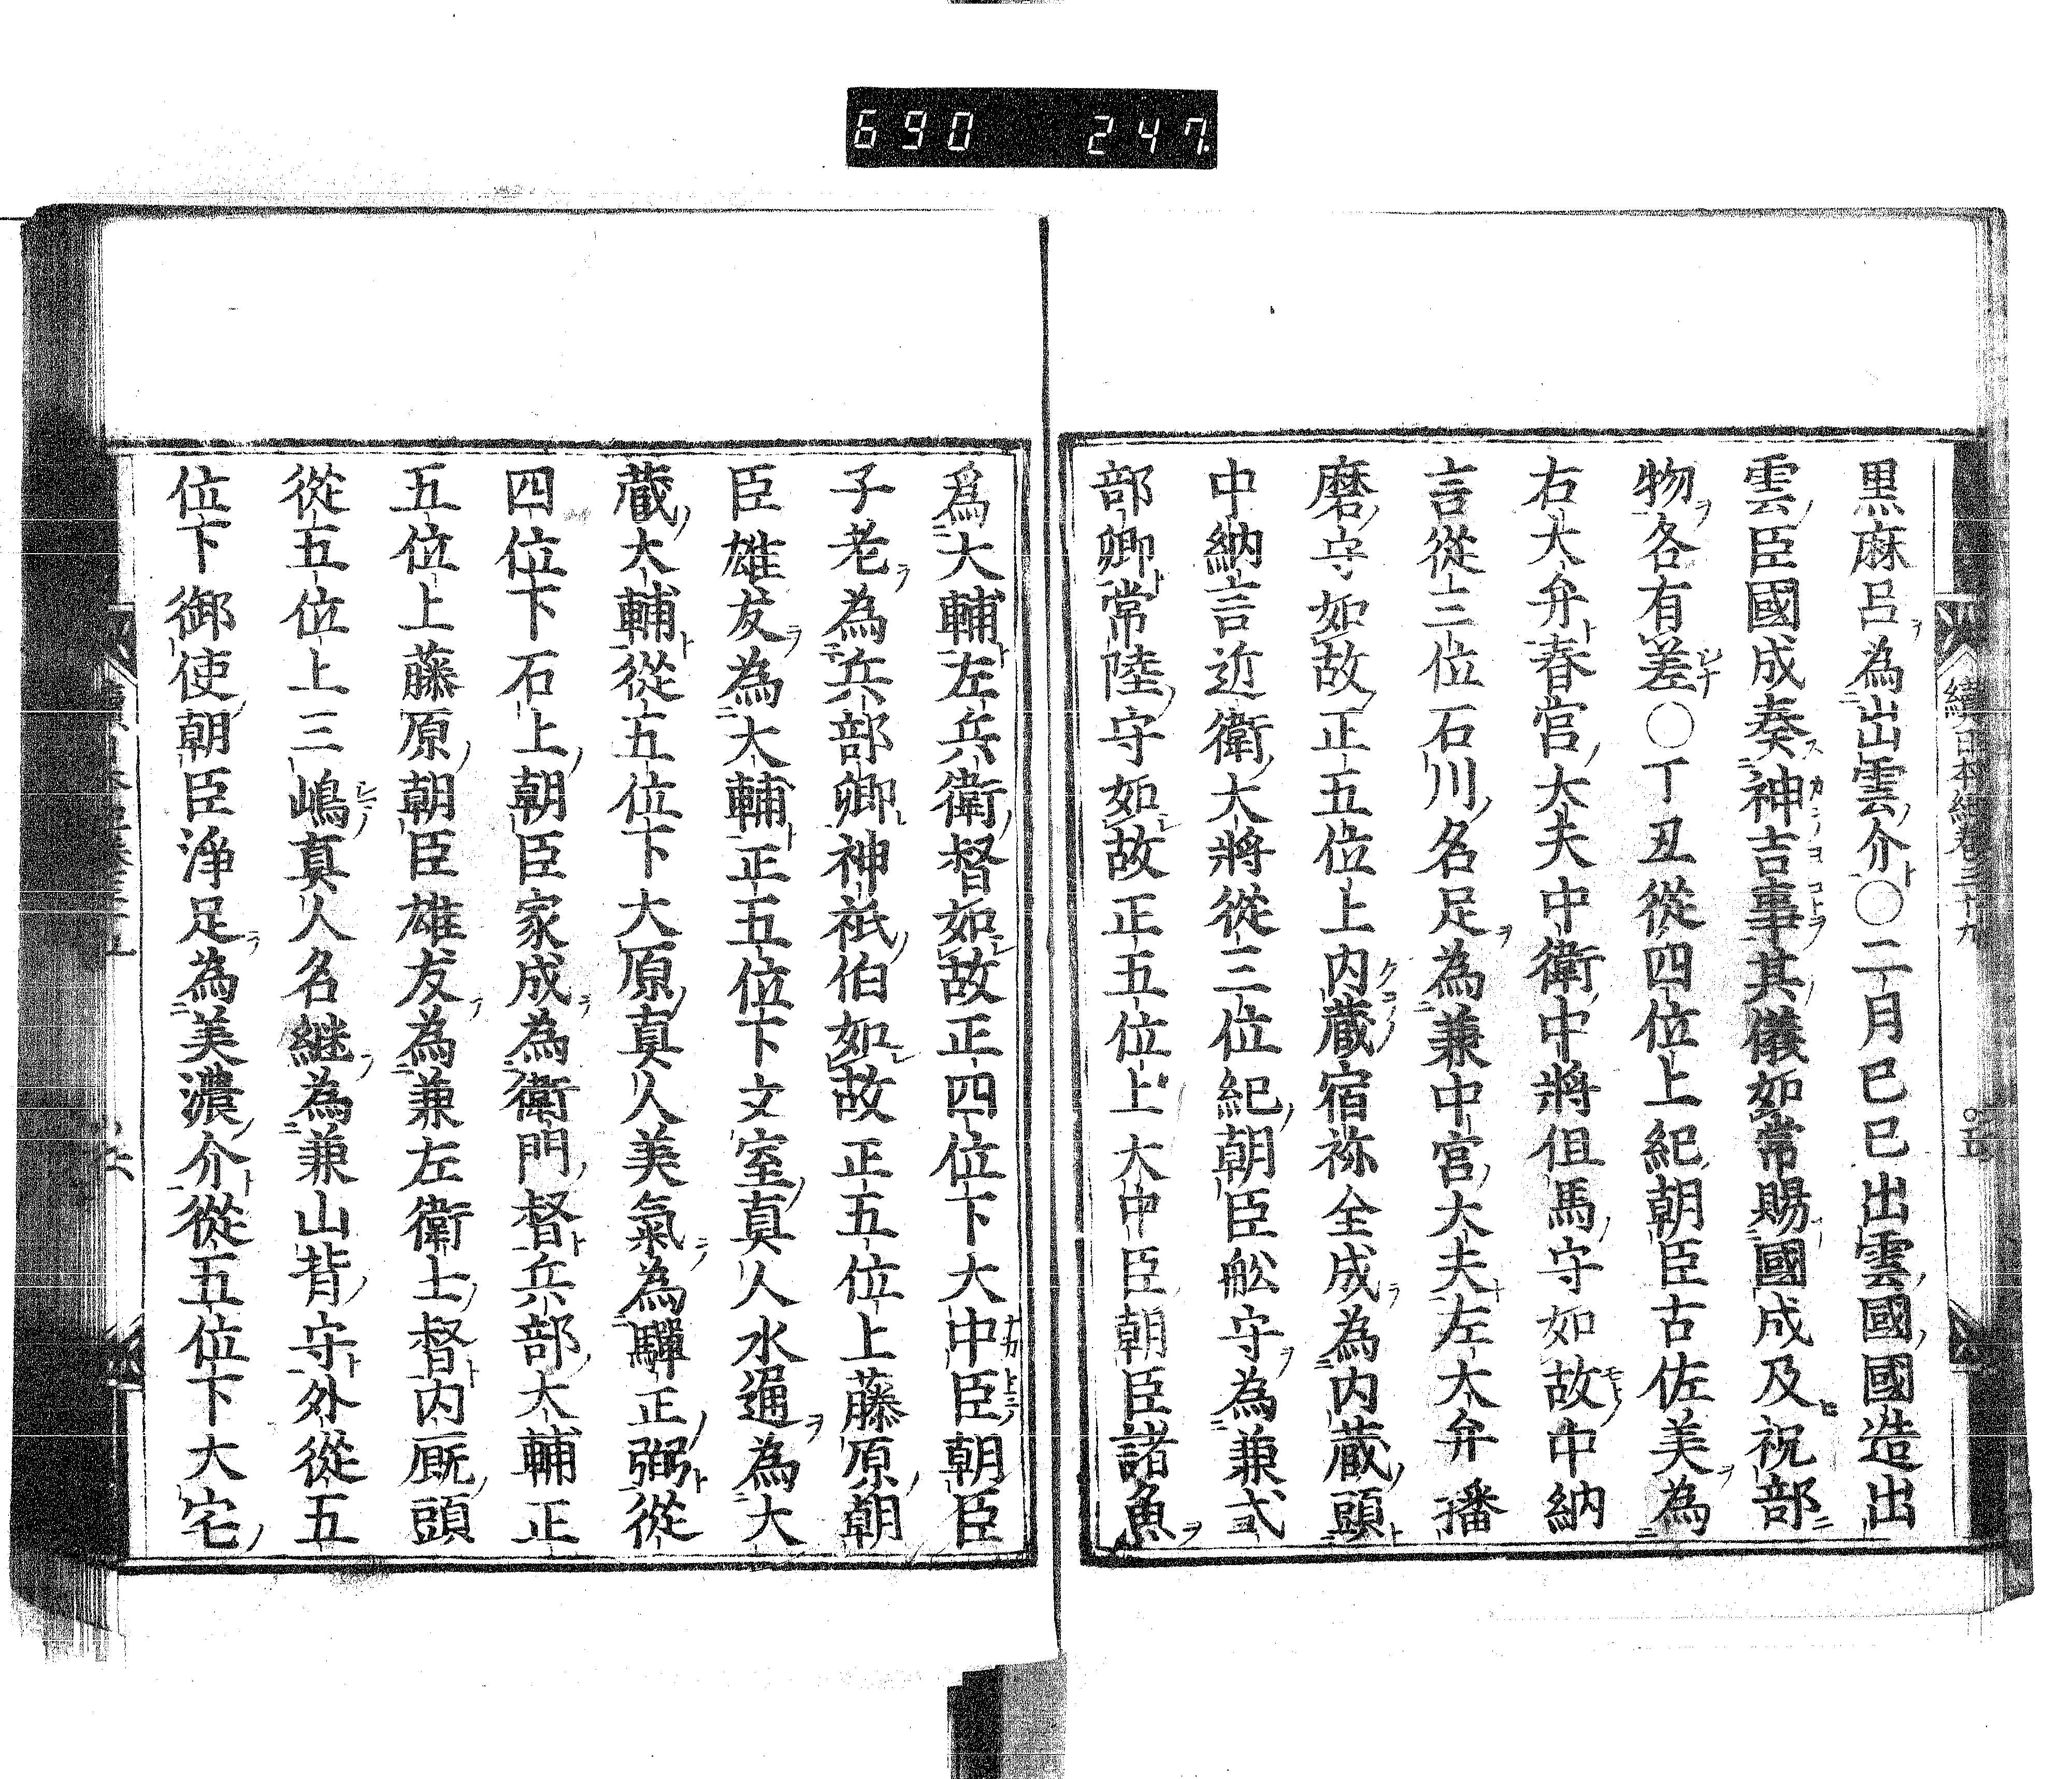 690 247.
續日本紀卷三十九 五
黒麻呂為出雲介〇二月已已出雲國國造出
雲臣國成奏神吉事其儀如常賜國成及祝部
物各有差〇丁丑從四位上紀朝臣古佐美為
右大弁春官大夫中衛中將但馬守如故中納
言從三位石川名足為兼中宮大夫左大弁播
磨守如故正五位上内蔵宿祢全成為内蔵頭
中納言近衛大將從三位紀朝臣舩守為兼式
部卿常陸守如故正五位上大中臣朝臣諸魚
爲大輔左兵衛督如故正四位下大中臣朝臣
子老為兵部卿神祇伯如故正五位上藤原朝
臣雄友為大輔正五位下文室真人水通為大
蔵大輔從五位下大原真人美氣為彈正弼從
四位下石上朝臣家成為衛門督兵部大輔正
五位上藤原朝臣雄友為兼左衛士督内厩頭
從五位上三嶋真人名継為兼山背守外從五
位下御使朝臣浄足為美濃介從五位下大宅